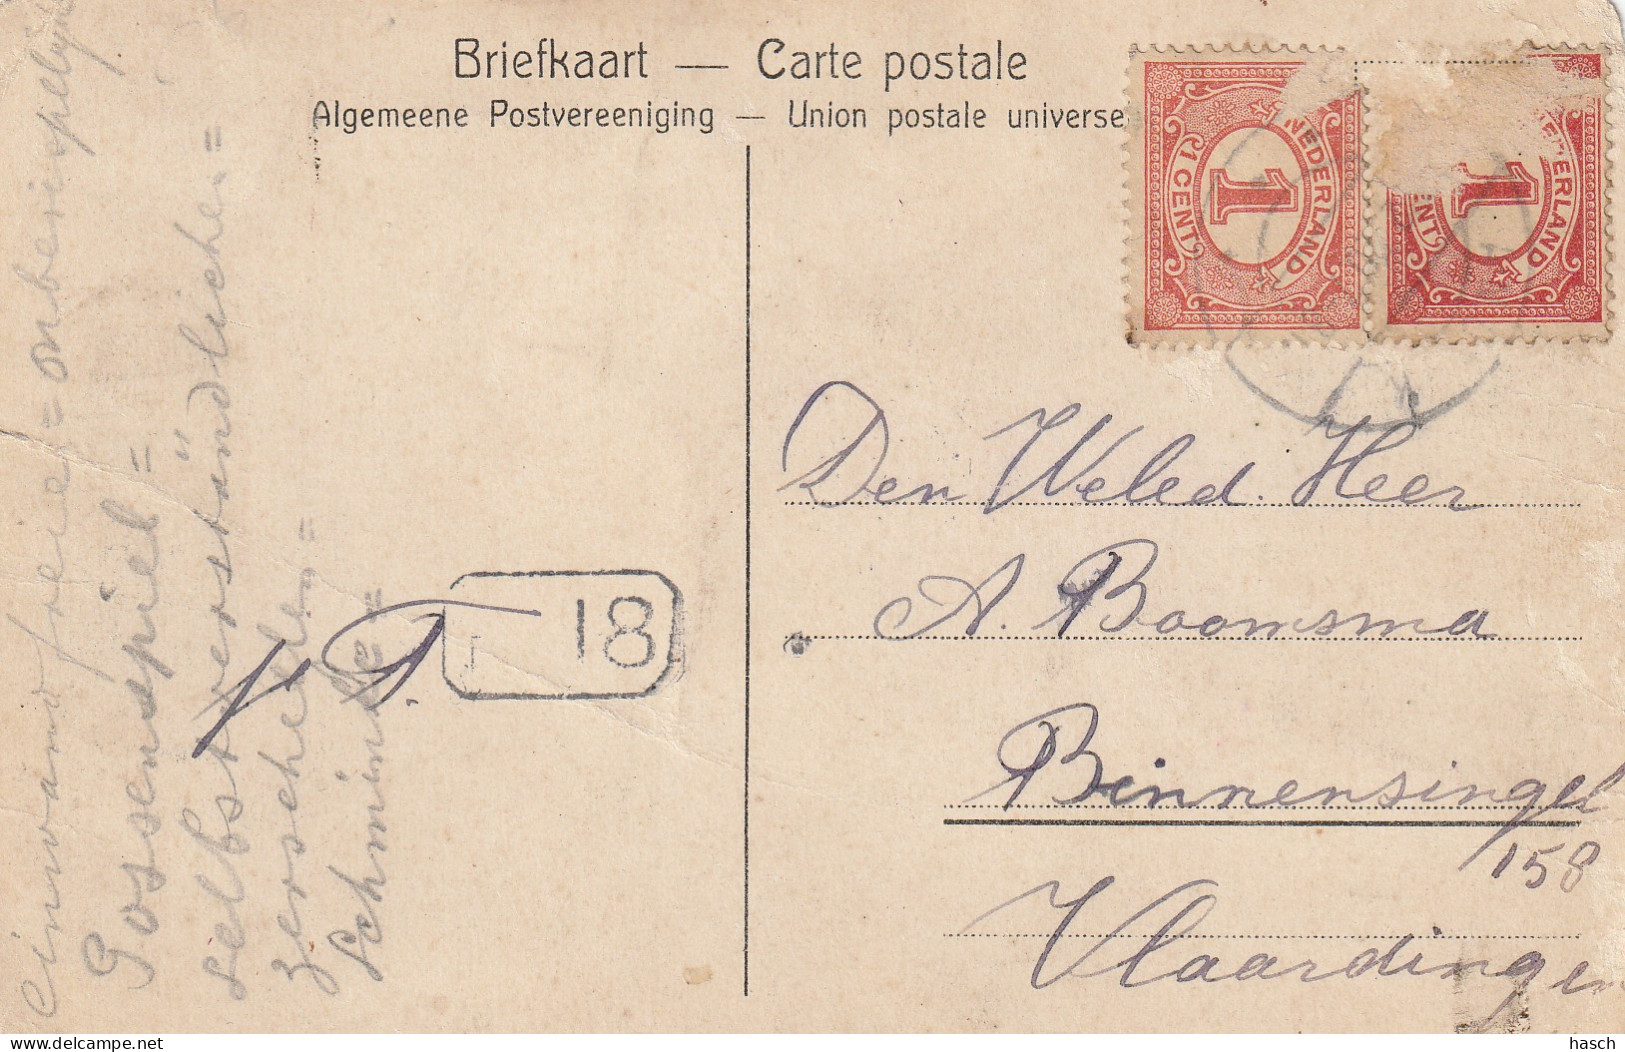 Briefkaart — Carte postale
Algemeene Postvereeniging — Union postale universe
NEDERLAND
1
1 CENT
DERLAND
1
ENT
Den Weled. Heer
A. Boomsma
Binnensingel
158
Vlaardingen
18
einwandfreies = onberispelijk
Possenspiel =
selbstverständlicher =
zerschellen =
Schminke =
delcampe.net
hasch